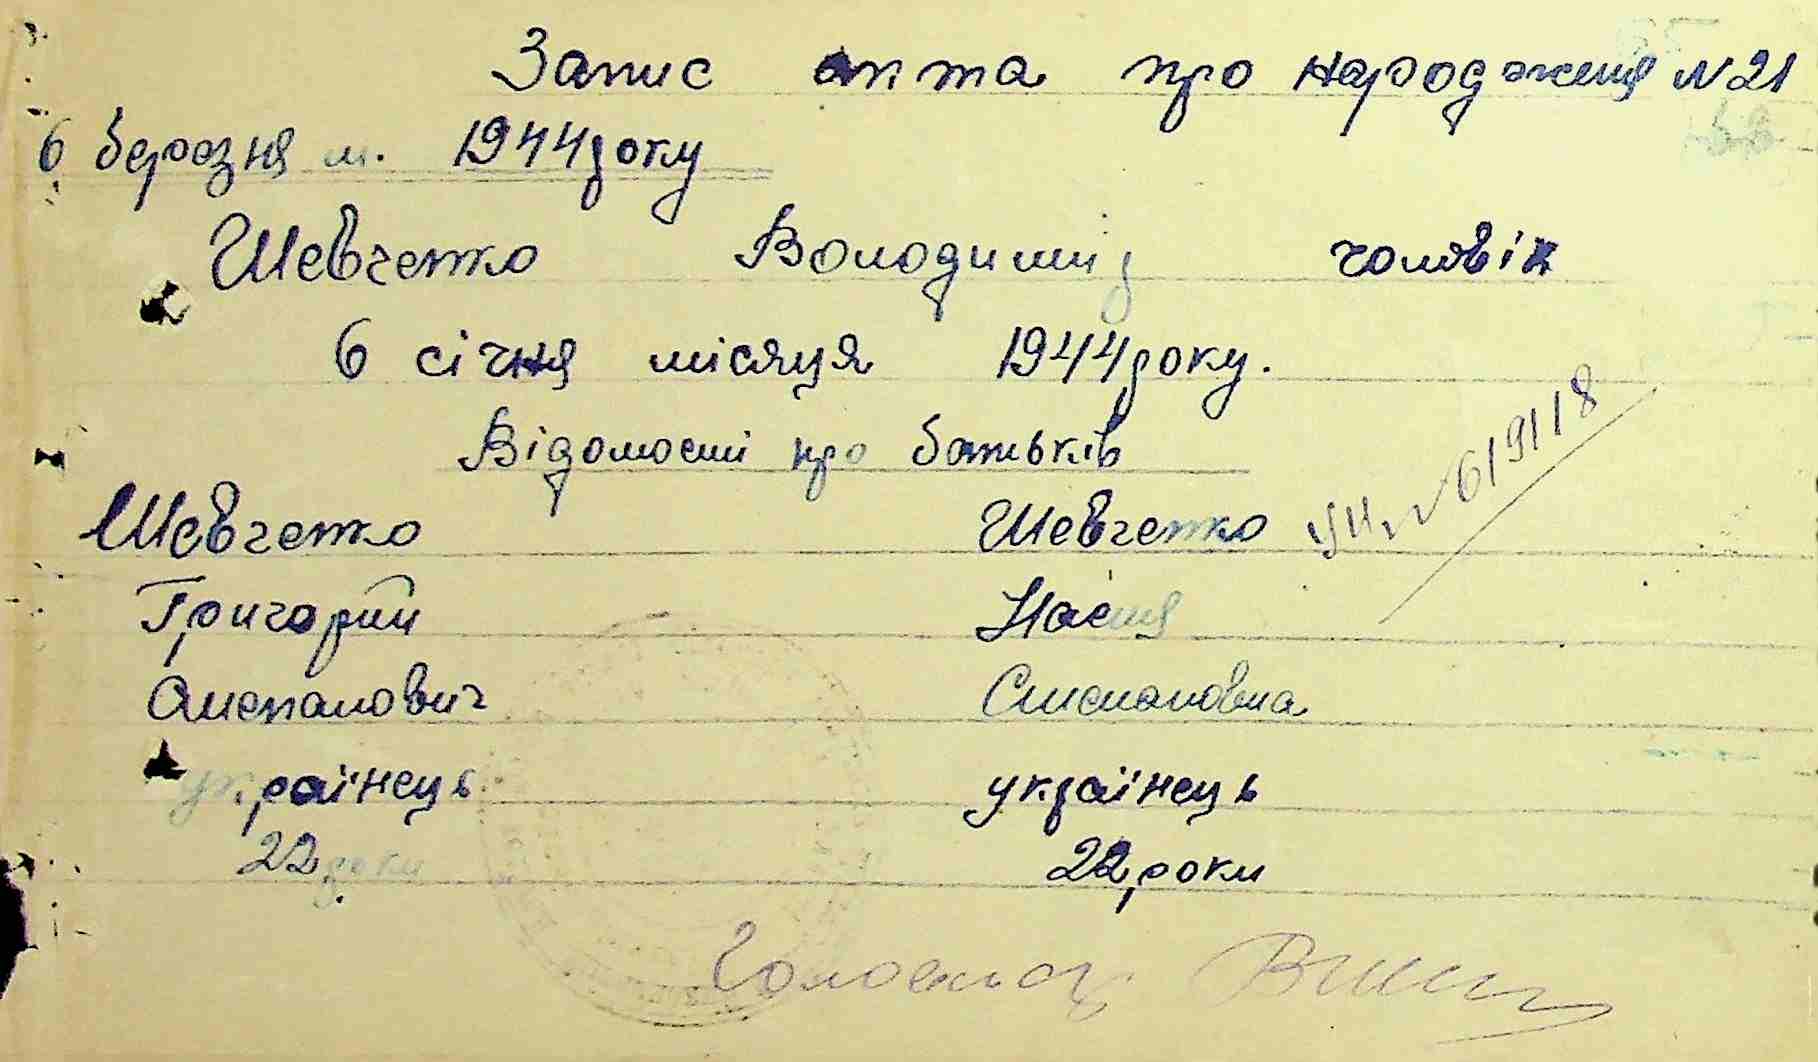 Запис акта про народження №21
6 березня м. 1944 року
Шевченко Володимир чоловік
6 січня місяця 1944 року.
Відомості про батьків
Шевченко Шевченко № 619118
Григорий Настя
Степанович Степановна
українець українець
22 роки 22 роки